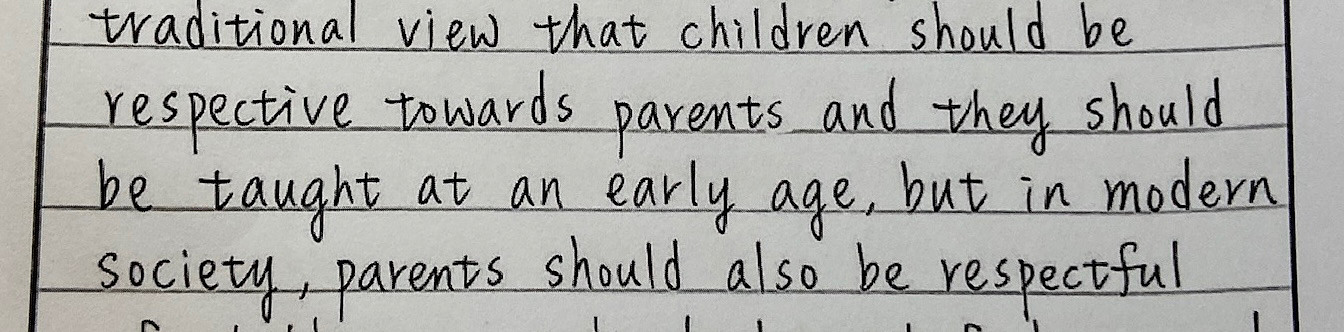 traditional view that children should be
respective towards parents and they should
be taught at an early age, but in modern
society, parents should also be respectful